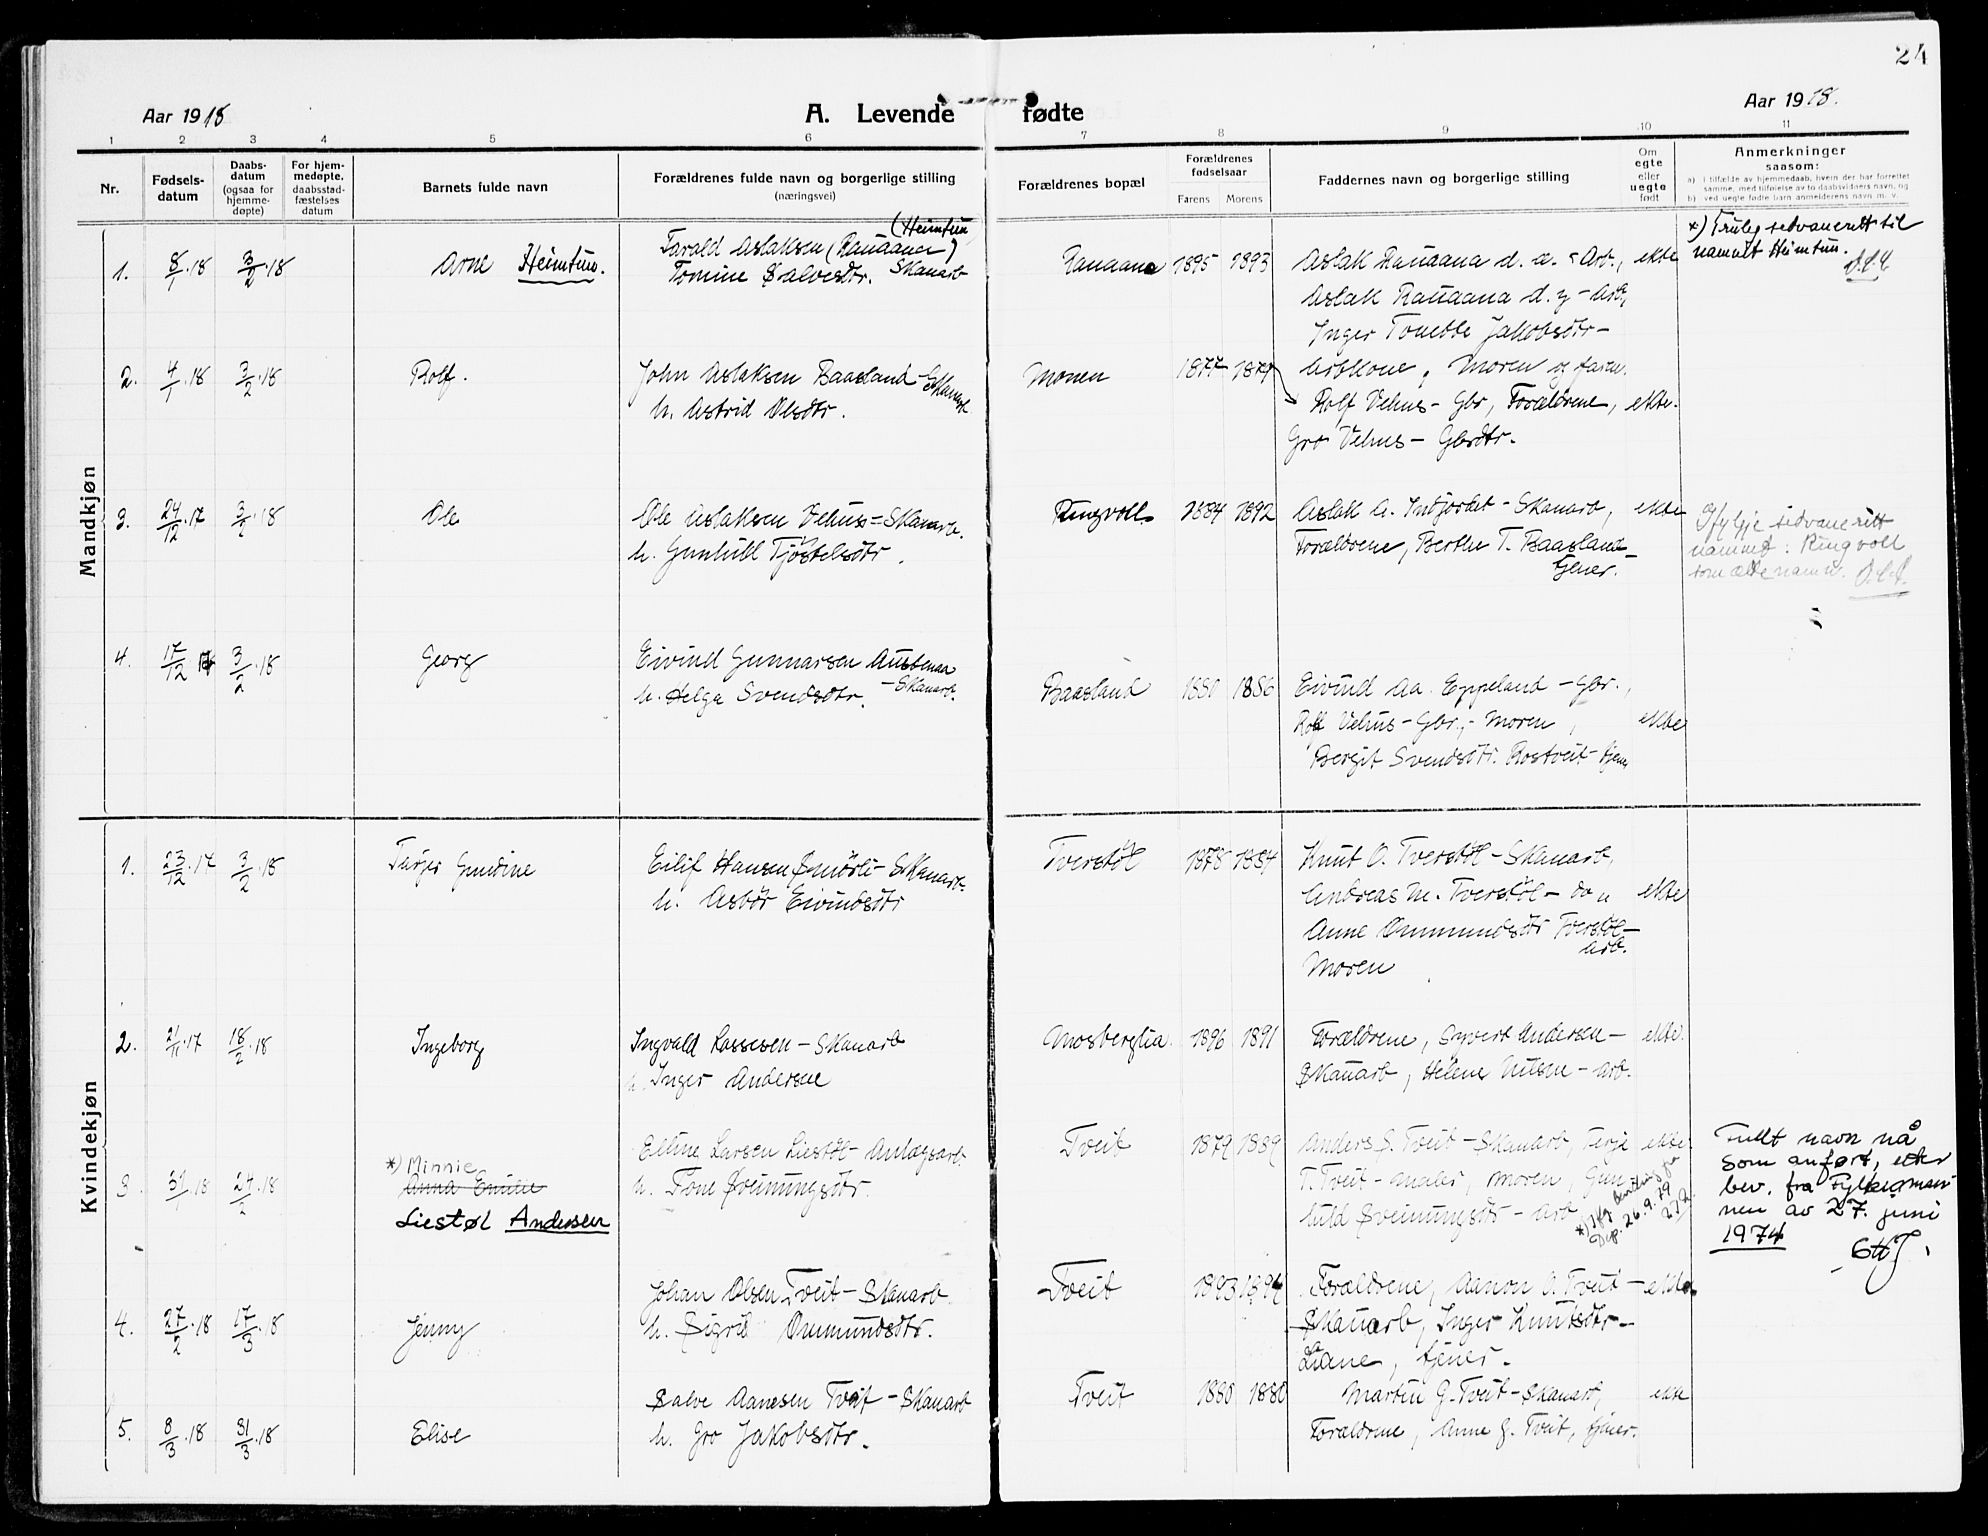 24
Aar 1918
A. Levende fødte
Aar 1918.
1 2 3 4 5 6 7 8 9 10 11
Nr.
Fødsels-
datum
Daabs-
datum
(ogsaa for
hjemme-
døpte)
For hjem-
medøpte.
daabsstad-
fæstelses
datum
Barnets fulde navn
Forældrenes fulde navn og borgerlige stilling
(næringsvei)
Forældrenes bopæl
Forældrenes
fødselsaar
Farens Morens
Faddernes navn og borgerlig stilling
Om
egte
eller
uegte
født
Anmerkninger
saasom:
a) i tilfælde av hjemmedaab, hvem der har forrettet
samme, med tilføielse av to daabsvidners navn, og
b) ved uegte fødte barn anmelderens navn m. v.
Mandkjøn
1. 8/1·18 3/2·18 Arne Heimtun.
(Heimtun)
Tarald Aslaksen (Rauaana)
Tomine Salvesdtr. Skanarb
Rauaana 1895 1893
Aslak Rauaana d. æ. - Arb., ekte
Aslak Rauaana d. y - Arb,
Inger Tonette Jakobsdtr -
Arbkone, Moren og farm.
*) Truleg sedvanerett til
namnet Heimtun.
2. 4/1·18 3/2·18 Rolf.
John Aslaksen Baasland - Skanarb
h. Astrid Olsdtr.
Monen 1877 1879
Rolf Vehus - Gbr, Forældrene, ekte.
Gro Vehus - Gbrdtr.
3. 24/12·17 3/2·18 Ole
Ole Aslaksen Vehus = Skanarb.
h. Gunhild Tjøstelsdtr.
Ringvoll 1884 1892
Aslak A. Indjordet - Skanarb, ekte
Forældrene, Berthe T. Baasland -
tjener.
Ifylgje sedvanerett
namnet: Ringvoll
som ættenamn.
4. 17/12 17 3/2·18 Georg
Eivind Gunnarsen Austenaa
h. Helga Svendsdtr. - Skanarb.
Baasland 1880 1886
Eivind Aa. Eppeland - Gbr.,
Rolf Vehus - Gbr, - Moren, ekte
Bergit Svendsdtr. Rostveit - tjener
Kvindekjøn
1. 23/12·17 3/2·18 Tarjer Gundine
Eilif Hansen Smørli - Skanarb.
h. Asbør Eivindsdtr
Tverstøl 1878 1884
Knut O. Tverstøl - Skanarb,
Andreas M. Tverstøl - do " ekte
Anne Ommundsdtr Tverstøl -
arb.
Moren
2. 21/11·17 18/2·18 Ingeborg
Ingvald Lassesen - Skanarb
h. Inger Andersen
Mosberglia. 1896 1891
Forældrene, Syvert Andersen - ekte.
Skanarb, Helene Nilsen - arb.
3. 31/1·18 24/2·18
*) Minnie
Anna Emilie
Liestøl Andersen
Elling Larsen Liestøl - Anlægsarb.
h. Tone Sveinungsdtr.
Tveit 1879 1889
Anders S. Tveit - Skanarb, Terje ekte
T. Tveit - maler, Moren, Gun-
hild Sveinungsdtr - arb
*) Iflg bevilling fra
Dep. 26.9.19
Fullt navn nå
som anført, etter
bev. fra Fylkesman-
nen av 27. juni
1974
4. 27/2·18 17/3·18 Jenny
Johan Olsen Tveit - Skanarb
h. Sigrid Ommundsdtr.
Tveit 1893 1894
Forældrene, Aanon O. Tveit - ekte
Skanarb, Inger Knutsdtr -
Liane, tjener.
5. 8/3·18 31/3·18 Elise
Salve Aanesen Tveit - Skanarb
h. Gro Jakobsdtr.
Tveit 1880 1880
Martin G. Tveit - Skanarb, ekte
Forældrene, Anne G. Tveit, tjener.